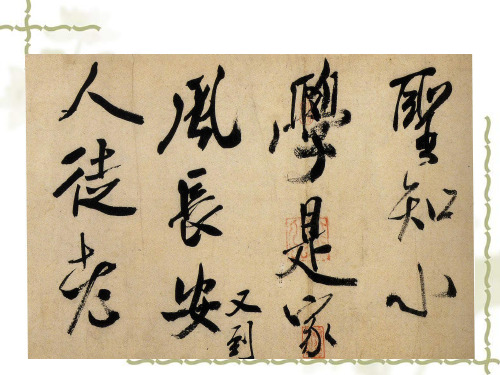 聖知小
學是家
風長安又到
人徒老